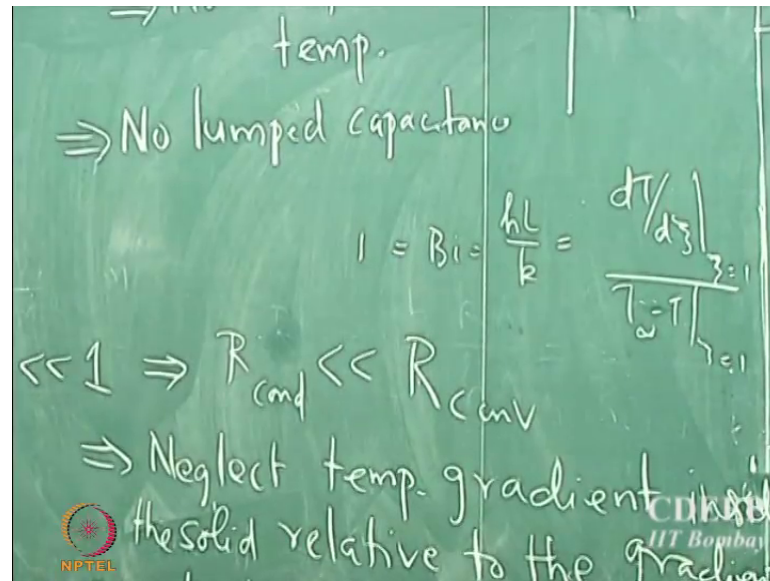 temp.
⇒ No lumped capacitanc
1 = Bi = hL/k = dT/dξ|ξ=1 / T∞-T|ξ=1
<<1 ⇒ Rcond << Rconv
⇒ Neglect temp. gradient
the solid relative to the gradient
NPTEL
IIT Bombay